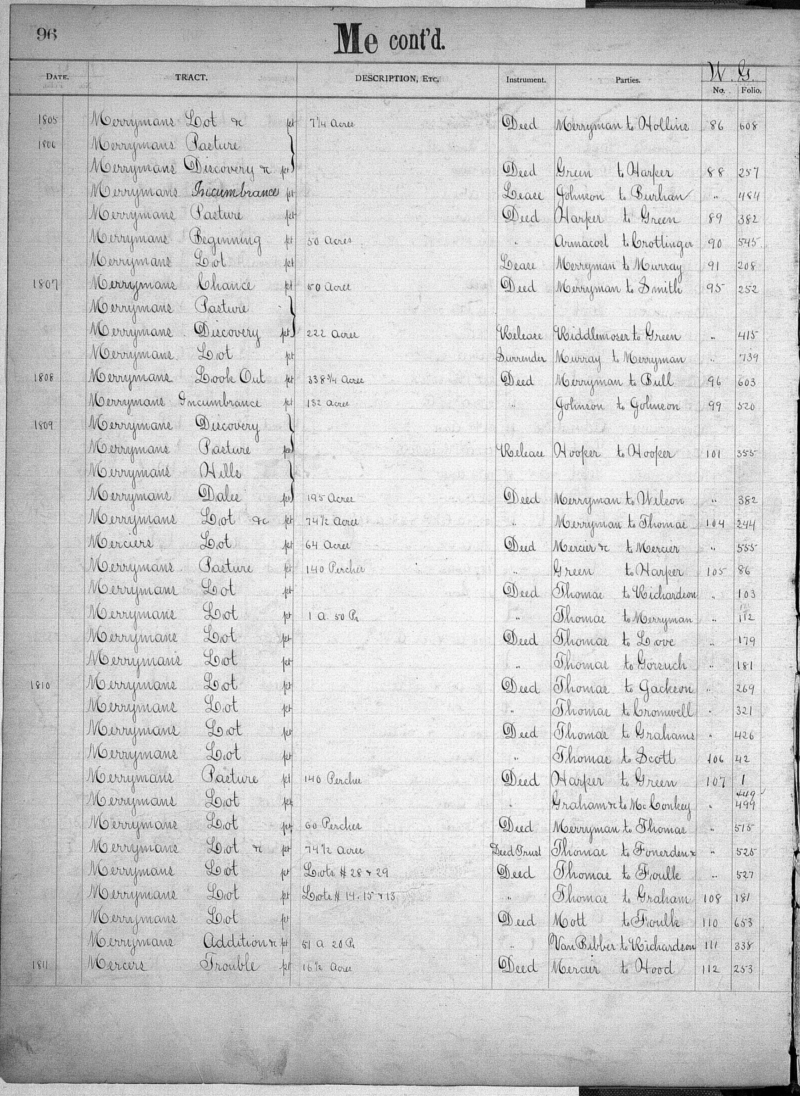 96
Me cont'd.
W. G.
DATE. TRACT. DESCRIPTION, ETC. Instrument. Parties. No. Folio.
1805 Merrymans Lot &c pt 7 1/4 Acres Deed Merryman to Hollins 86 608
1806 Merrymans Pasture
Merrymans Discovery &c pt Deed Green to Harper 88 257
Merrymans Incumbrance pt Lease Johnson to Burhan " 484
Merrymans Pasture pt Deed Harper to Green 89 382
Merrymans Beginning pt 50 Acres " Armacost to Crottinger 90 545
Merrymans Lot pt Lease Merryman to Murray 91 208
1807 Merrymans Chance pt 50 Acres Deed Merryman to Smith 95 252
Merrymans Pasture
Merrymans Discovery pt 222 Acres Release Riddlemoser to Green " 415
Merrymans Lot pt Surrender Murray to Merryman " 739
1808 Merrymans Look Out pt 338 3/4 Acres Deed Merryman to Bull 96 603
Merrymans Incumbrance pt 152 Acres " Johnson to Johnson 99 520
1809 Merrymans Discovery
Merrymans Pasture pt Release Hooper to Hooper 101 355
Merrymans Hills
Merrymans Dales pt 195 Acres Deed Merryman to Wilson " 382
Merrymans Lot &c pt 74 1/2 Acres " Merryman to Thomas 104 244
Merciers Lot pt 64 Acres Deed Mercier &c to Mercier " 555
Merrymans Pasture pt 140 Perches " Green to Harper 105 86
Merrymans Lot pt Deed Thomas to Richardson " 103
Merrymans Lot pt 1 a 50 Ps " Thomas to Merryman " 112
Merrymans Lot pt Deed Thomas to Love " 179
Merrymans Lot pt " Thomas to Gorsuch " 181
1810 Merrymans Lot pt Deed Thomas to Jackson " 269
Merrymans Lot pt " Thomas to Cromwell " 321
Merrymans Lot pt Deed Thomas to Grahams " 426
Merrymans Lot pt " Thomas to Scott 106 42
Merrymans Pasture pt 140 Perches Deed Harper to Green 107 1
Merrymans Lot pt " Graham &c to McConkey " 449 499
Merrymans Lot pt 60 Perches Deed Merryman to Thomas " 515
Merrymans Lot &c pt 74 1/2 Acres Deed Trust Thomas to Fonerden &c " 525
Merrymans Lot pt Lots # 28 & 29 Deed Thomas to Foulk " 527
Merrymans Lot pt Lots # 14. 15 & 13 " Thomas to Graham 108 181
Merrymans Lot pt Deed Mott to Foulk 110 653
Merrymans Addition &c pt 51 a 20 Ps " Van Bibber to Richardson 111 338
1811 Mercers Trouble pt 16 1/2 Acres Deed Mercier to Hood 112 253